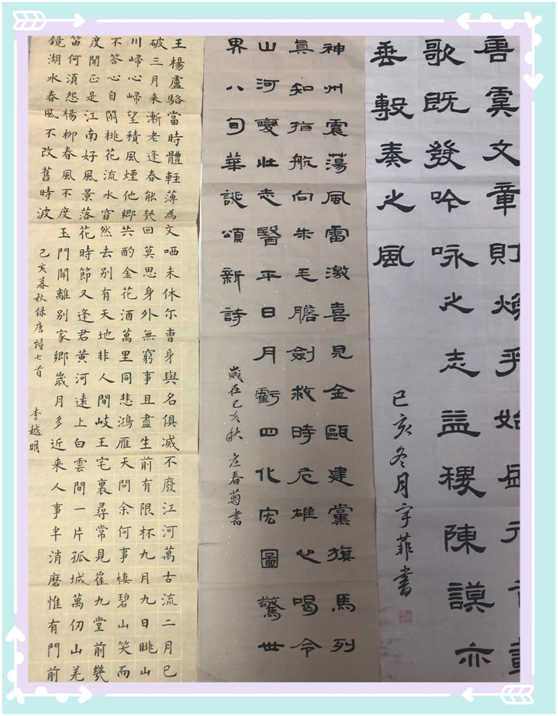 虞文章則煥乎始盛元首載
歌既發吟咏之志益稷陳謨亦
垂敷奏之風
己亥冬月宇菲書
神州震蕩風雷激喜見金甌建黨旗馬列
真知指航向朱毛膽劍救時危雄心喝令
山河變壯志醫平日月虧四化宏圖驚世
界八旬華誕頌新詩
歲在己亥秋 春菊書
王楊盧駱當時體輕薄為文哂未休尔曹身與名俱滅不廢江河萬古流二月已
破三月来漸老逢春能幾回莫思身外無窮事且盡生前有限杯九月九日眺山
川歸心歸望積風煙他鄉共酌金花酒萬里同悲鴻雁天問余何事棲碧山笑而
不答心自閑桃花流水窅然去別有天地非人間岐王宅裏尋常見崔九堂前幾
度聞正是江南好風景落花時節又逢君黃河遠上白雲間一片孤城萬仞山羌
笛何須怨楊柳春風不度玉門關離別家鄉歲月多近来人事半消磨惟有門前
鏡湖水春風不改舊時波
己亥暮秋錄唐詩七首 李越明